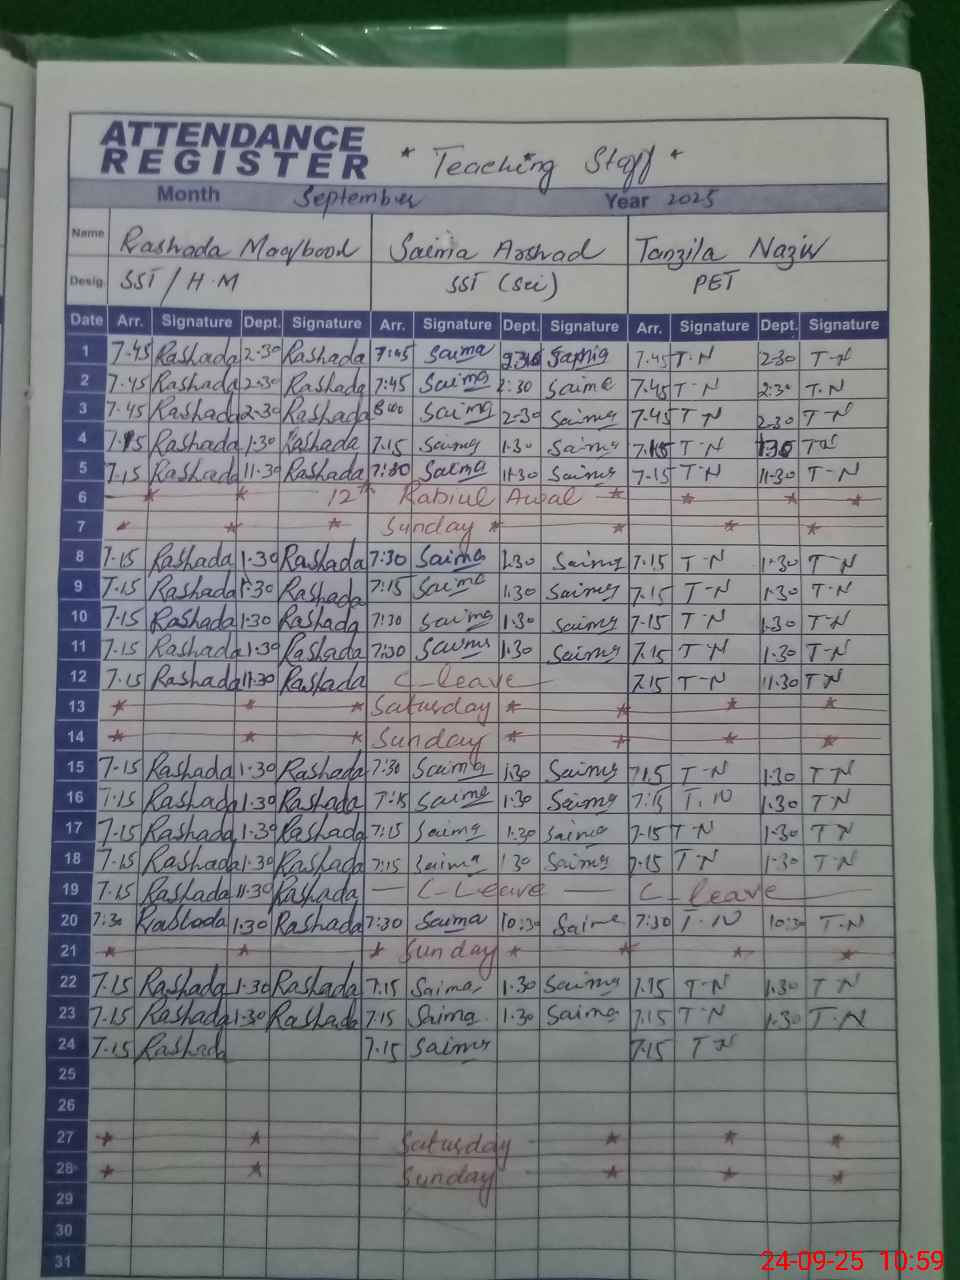 ATTENDANCE
REGISTER * Teaching Staff *
Month September Year 2025
Name Rashada Maqbool Saima Arshad Tanzila Nazir
Desig. SST / H.M SST (Sci) PET
Date Arr. Signature Dept. Signature Arr. Signature Dept. Signature Arr. Signature Dept. Signature
1 7.45 Rashada 2.30 Rashada 7:45 Saima 7.45 T.N 2.30 T-N
2 7.45 Rashada 2.30 Rashada 7:45 Saima 2:30 Saima 7.45 T N 2:30 T.N
3 7.45 Rashada 2.30 Rashada 8:00 Saima 2-30 Saima 7.45 T N 2.30 T-N
4 Rashada 1.30 Rashada 7.15 Saima 1.30 Saima T N TN
5 7.15 Rashada 11.30 Rashada Saima 11.30 Saima 7.15 T-N 11.30 T-N
6 * * 12th Rabiul Awal * * * *
7 * * * Sunday * * * *
8 7.15 Rashada 1.30 Rashada 7:30 Saima 1.30 Saima 7.15 T N 1.30 T N
9 7.15 Rashada 1.30 Rashada 7:15 Saima 1.30 Saima 7.15 T-N 1.30 T.N
10 7.15 Rashada 1.30 Rashada 7:30 Saima 1.30 Saima 7.15 T N 1.30 T-N
11 7.15 Rashada 1.30 Rashada 7:30 Saima 1.30 Saima 7.15 T N 1.30 T-N
12 7.15 Rashada 11.30 Rashada C-leave 7.15 T-N 11.30 T N
13 * * * Saturday * * * *
14 * * * Sunday * * * *
15 7.15 Rashada 1.30 Rashada 7:30 Saima 1.30 Saima 7.15 T-N 1.30 T N
16 7.15 Rashada 1.30 Rashada 7:15 Saima 1.30 Saima 7:15 T.N 1.30 T N
17 7.15 Rashada 1.30 Rashada 7:15 Saima 1.30 Saima 7.15 T-N 1.30 T N
18 7.15 Rashada 1.30 Rashada 7:15 Saima 1 30 Saima 7.15 T N 1.30 T N
19 7.15 Rashada 11.30 Rashada C-Leave C-leave
20 7:30 Rashada 1.30 Rashada 7:30 Saima 10:30 Saima 7:30 T.N 10:30 T.N
21 * * * Sunday * * * *
22 7.15 Rashada 1.30 Rashada 7.15 Saima 1.30 Saima 7.15 T-N 1.30 T N
23 7.15 Rashada 1.30 Rashada 7.15 Saima 1.30 Saima 7.15 T-N 1.30 T.N
24 7.15 Rashada 7.15 Saima 7.15 T N
25
26
27 * * Saturday * * *
28 * * Sunday * * *
29
30
31
24-09-25 10:59